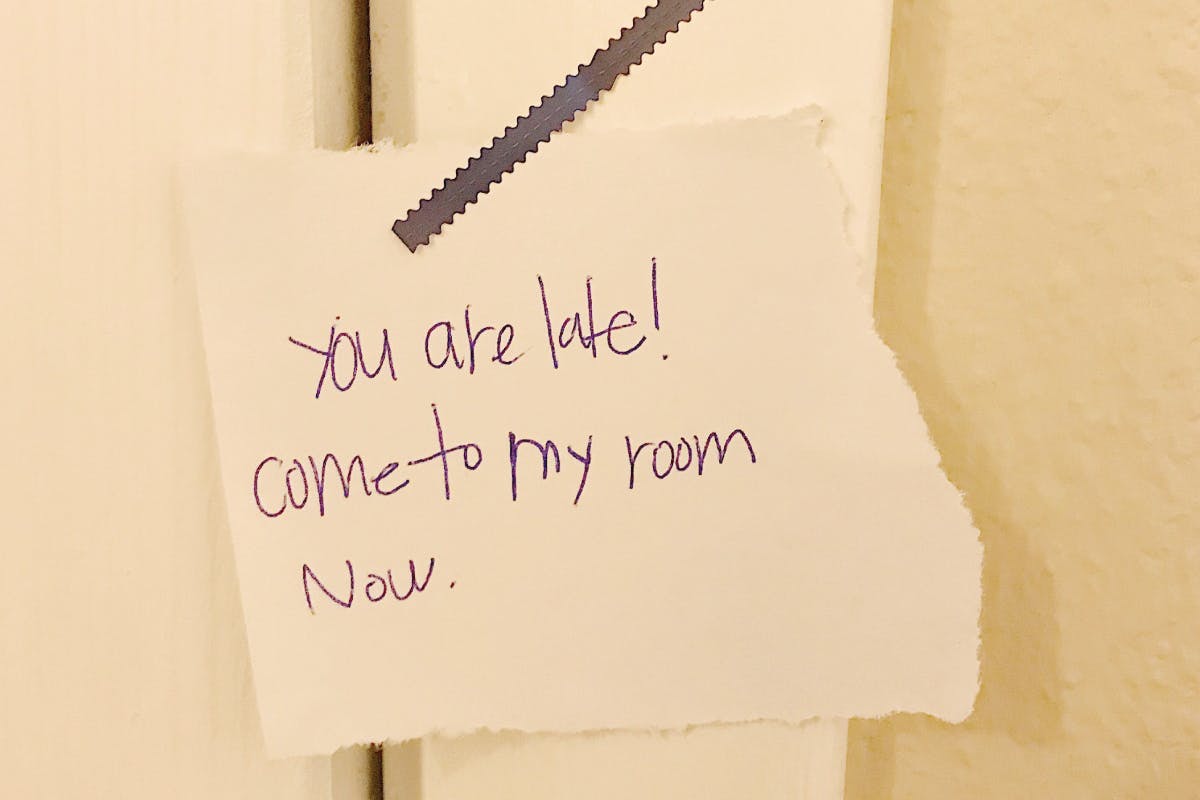 You are late!
come to my room
Now.